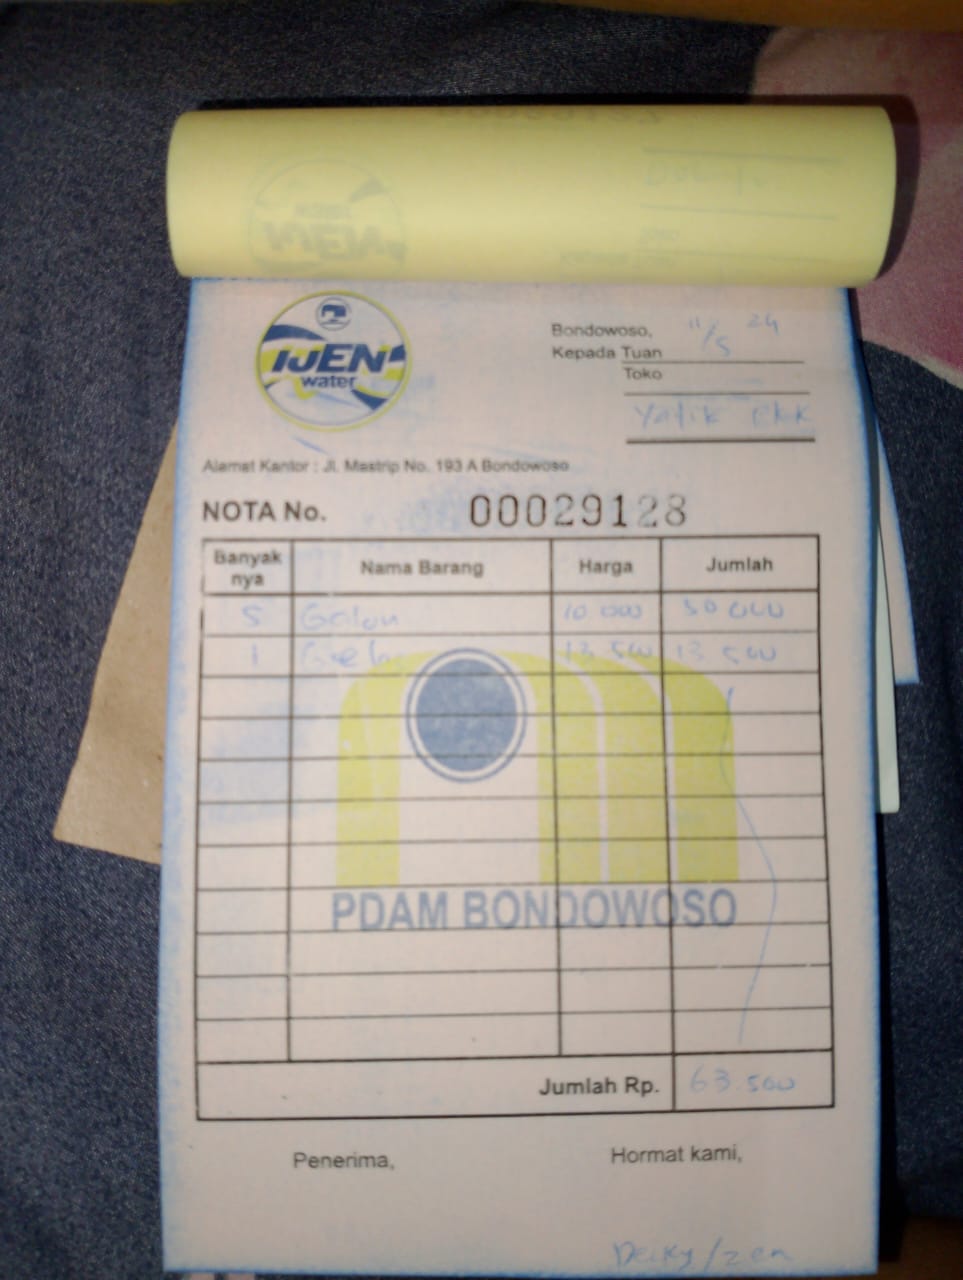 IJEN
water
Bondowoso, 11/5 24
Kepada Tuan
Toko
Yatik
Alamat Kantor : Jl. Mastrip No. 193 A Bondowoso
NOTA No. 00029128
Banyak nya Nama Barang Harga Jumlah
5 Galon 10.000 50 000
1 13 500 13 500
PDAM BONDOWOSO
Jumlah Rp. 63.500
Penerima, Hormat kami,
/zen